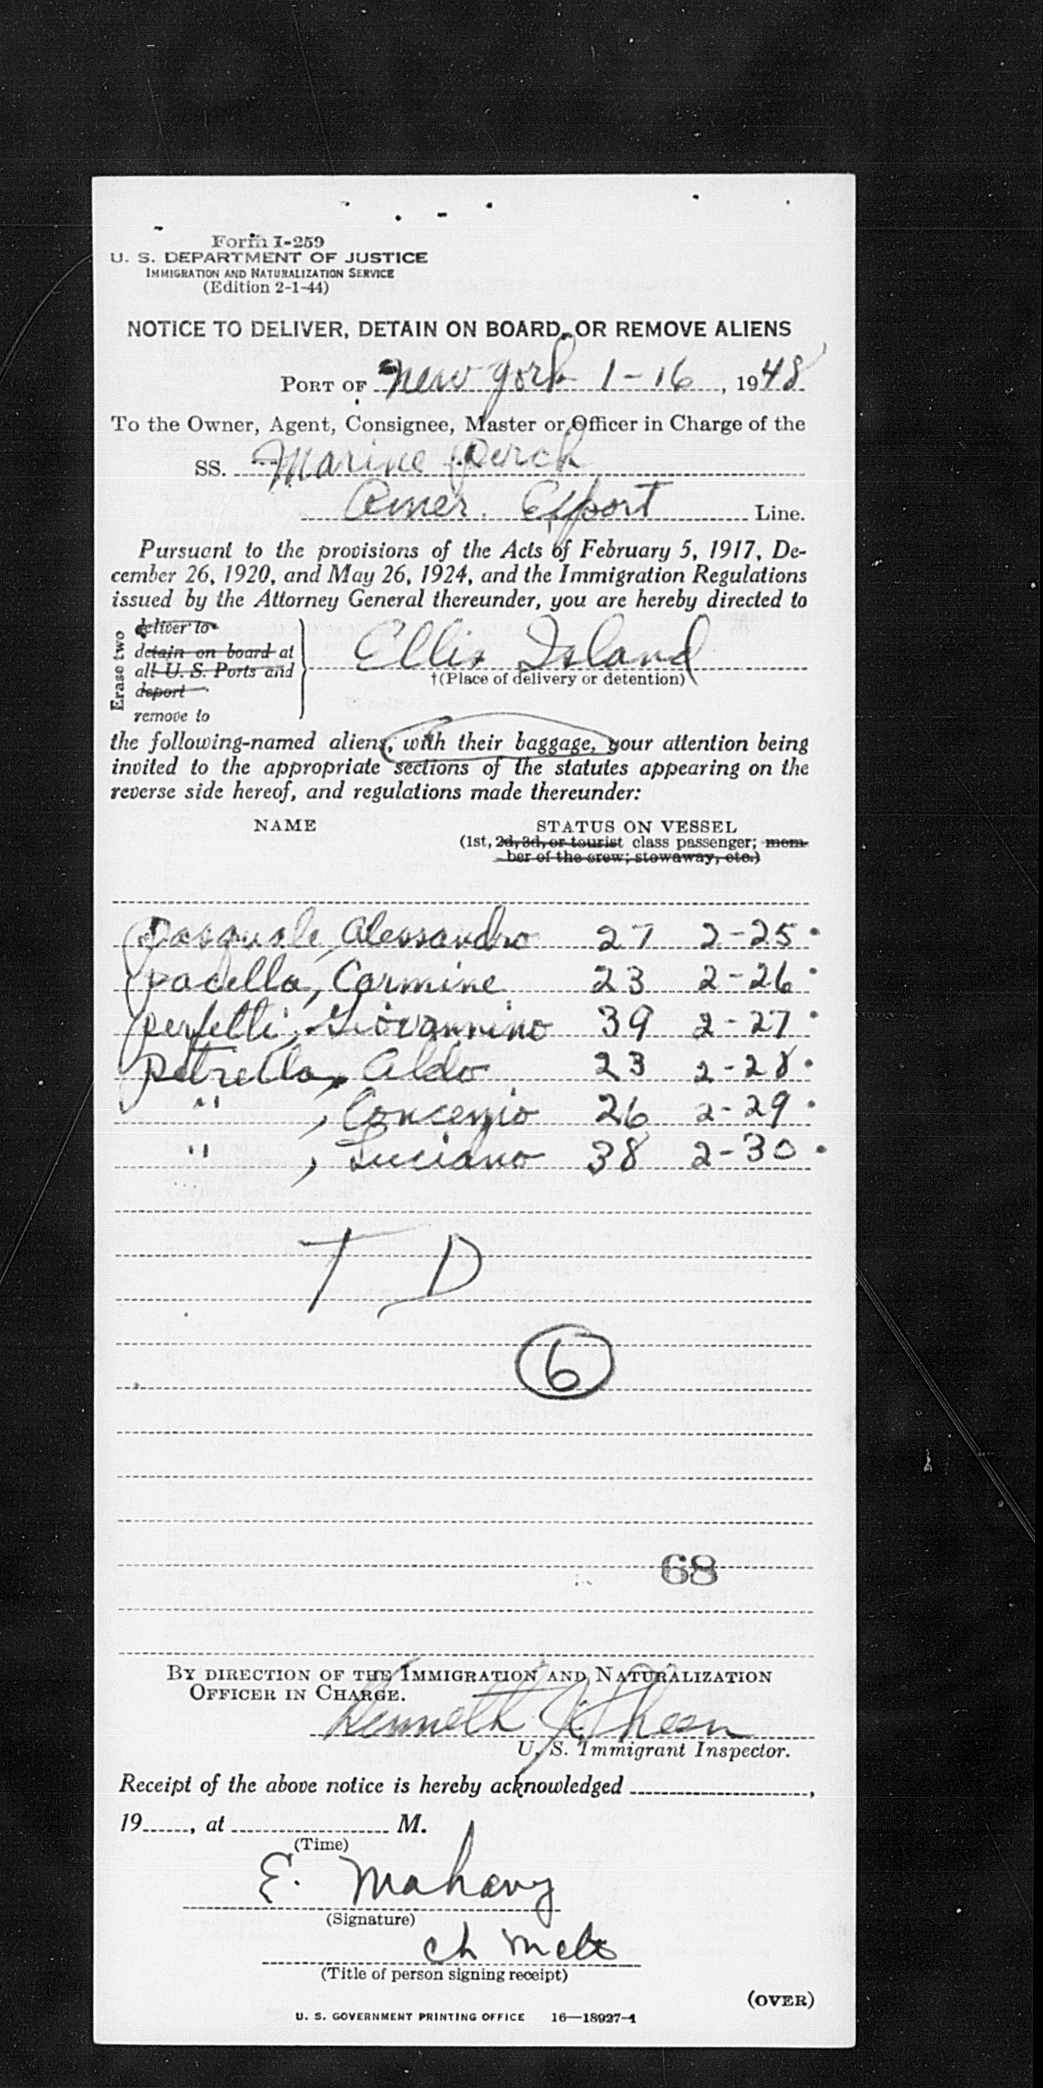 Form I-259
U. S. DEPARTMENT OF JUSTICE
IMMIGRATION AND NATURALIZATION SERVICE
(Edition 2-1-44)
NOTICE TO DELIVER, DETAIN ON BOARD, OR REMOVE ALIENS
PORT OF New York 1-16, 1948
To the Owner, Agent, Consignee, Master or Officer in Charge of the
SS. Marine Perch
Amer. Export Line.
Pursuant to the provisions of the Acts of February 5, 1917, De-
cember 26, 1920, and May 26, 1924, and the Immigration Regulations
issued by the Attorney General thereunder, you are hereby directed to
Erase two
deliver to
detain on board at
all U. S. Ports and
deport
remove to
Ellis Island
†(Place of delivery or detention)
the following-named aliens, with their baggage, your attention being
invited to the appropriate sections of the statutes appearing on the
reverse side hereof, and regulations made thereunder:
NAME STATUS ON VESSEL
(1st, 2d, 3d, or tourist class passenger; mem-
ber of the crew; stowaway, etc.)
Pasquale, Alessandro 27 2-25
Padella, Carmine 23 2-26
Perfetti, Giovannino 39 2-27
Petrella, Aldo 23 2-28
" , 26 2-29
" , Luciano 38 2-30
T D
6
68
BY DIRECTION OF THE IMMIGRATION AND NATURALIZATION
OFFICER IN CHARGE.
Kenneth
U. S. Immigrant Inspector.
Receipt of the above notice is hereby acknowledged ,
19 , at M.
(Time)
E. Mahany
(Signature)
ch
(Title of person signing receipt)
(OVER)
U. S. GOVERNMENT PRINTING OFFICE 16—18927-1